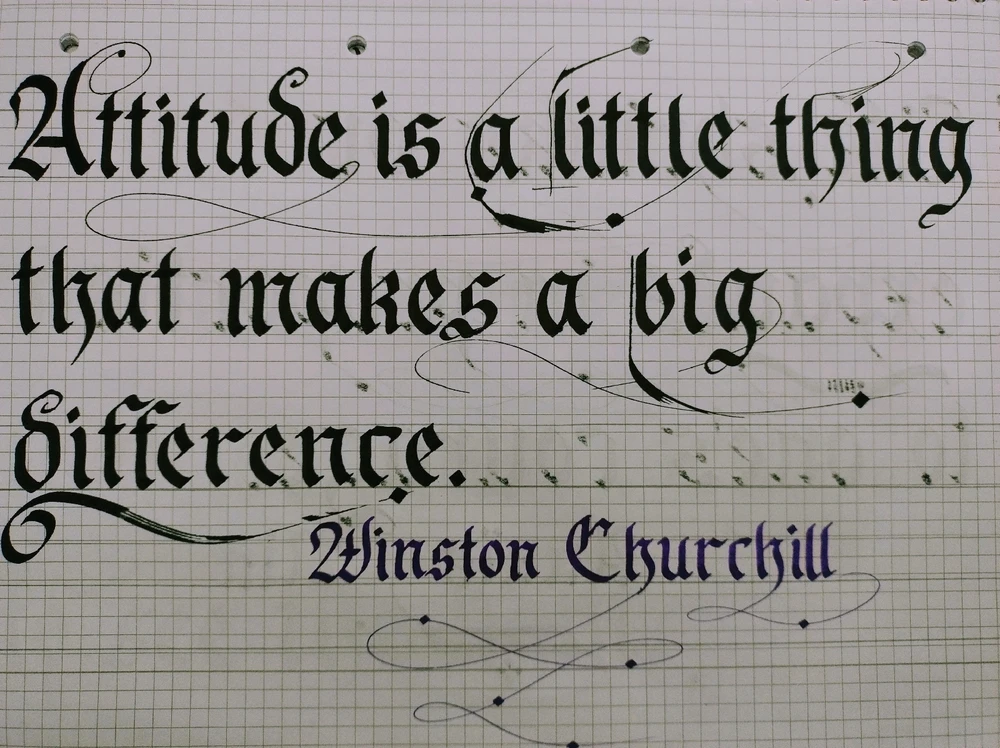 Attitude is a little thing
that makes a big
difference.
Winston Churchill